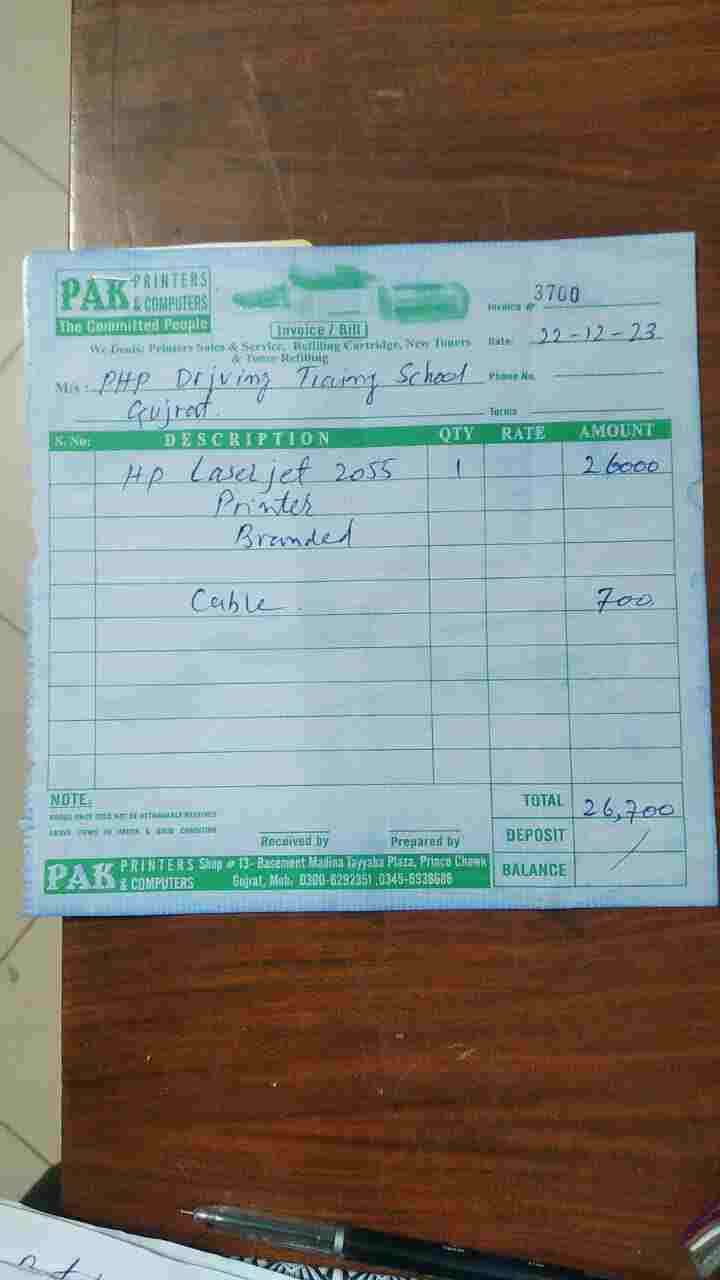 PAK PRINTERS & COMPUTERS
The Committed People
Invoice / Bill
We Deals: Printers Sales & Service, Refilling Cartridge, New Toners
& Toner Refilling
Invoice # 3700
Date: 22-12-23
M/s: PHP Driving Traing School
Phone No.
Gujrat.
Terms
S. No: DESCRIPTION QTY RATE AMOUNT
HP Laserjet 2055 1 26000
Printer
Branded
Cable. 700
NOTE:
GOODS ONCE SOLD NOT BE RETURNABLE
ABOVE ITEMS IN ORDER & GOOD CONDITION
Received by Prepared by
TOTAL 26,700
DEPOSIT
BALANCE
PAK PRINTERS & COMPUTERS
Shop # 13- Basement Madina Tayyaba Plaza, Prince Chowk
Gujrat, Mob: 0300-6292351